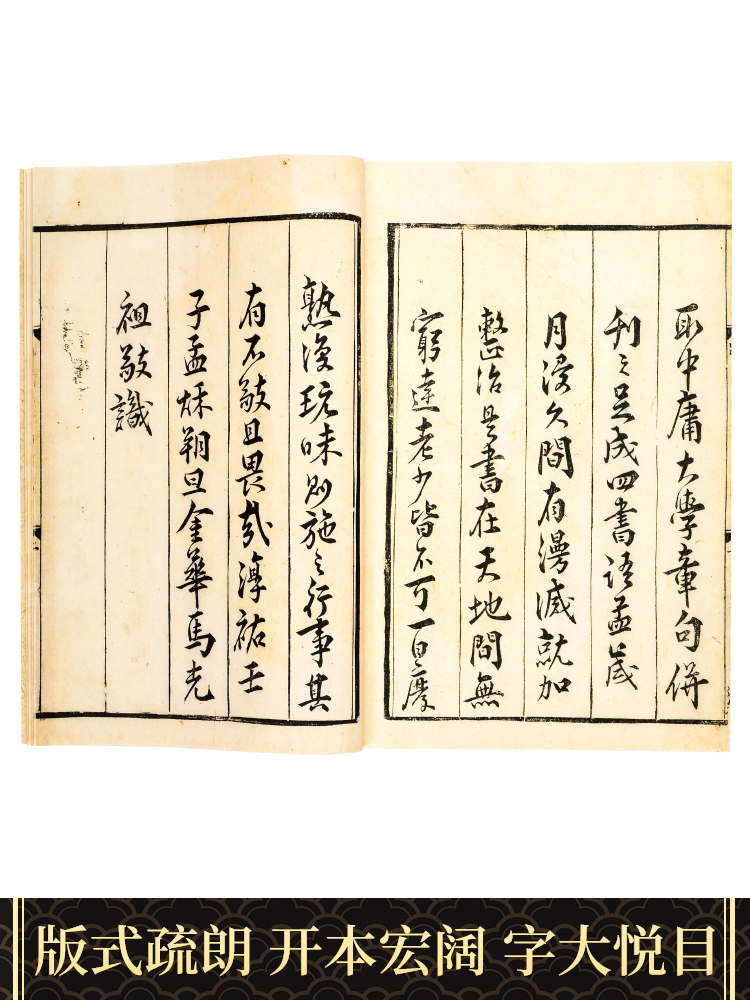 取中庸大學章句併
刊之足成四書語孟歲
月浸久間有漫滅就加
整治是書在天地間無
窮達老少皆不可一日廢
熟復玩味則施之行事其
有不敬且畏哉淳祐壬
子孟秌朔旦金華馬光
祖敬識
版式疏朗 开本宏阔 字大悦目